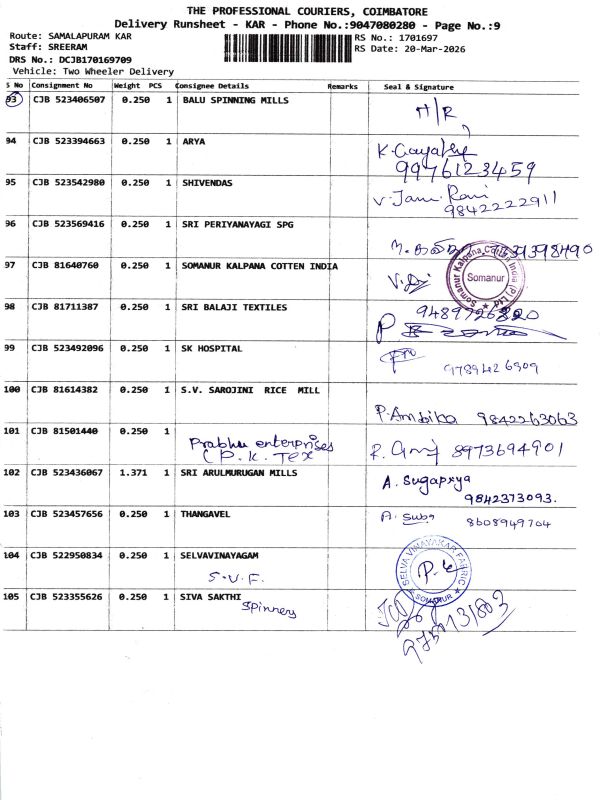 THE PROFESSIONAL COURIERS, COIMBATORE
Delivery Runsheet - KAR - Phone No.:9047080280 - Page No.:9
Route: SAMALAPURAM KAR RS No.: 1701697
Staff: SREERAM RS Date: 20-Mar-2026
DRS No.: DCJB170169709
Vehicle: Two Wheeler Delivery
S No Consignment No Weight PCS Consignee Details Remarks Seal & Signature
93 CJB 523406507 0.250 1 BALU SPINNING MILLS H/R
94 CJB 523394663 0.250 1 ARYA K. Gayathry
9976123459
95 CJB 523542980 0.250 1 SHIVENDAS V. Jam. Rani
9842222911
96 CJB 523569416 0.250 1 SRI PERIYANAYAGI SPG
97 CJB 81640760 0.250 1 SOMANUR KALPANA COTTEN INDIA Somanur Kalpana Cotton India (P) Ltd Somanur
98 CJB 81711387 0.250 1 SRI BALAJI TEXTILES
99 CJB 523492096 0.250 1 SK HOSPITAL
9789426909
100 CJB 81614382 0.250 1 S.V. SAROJINI RICE MILL
P. Ambika 9842263063
101 CJB 81501440 0.250 1
Prabhu enterprises 8973694901
( P.K. Tex
102 CJB 523436067 1.371 1 SRI ARULMURUGAN MILLS A. Sugapriya
9842373093.
103 CJB 523457656 0.250 1 THANGAVEL A. Suba 8608949704
104 CJB 522950834 0.250 1 SELVAVINAYAGAM SELVA VINAYAKAR FABRIC SOMANUR
S.V.F.
105 CJB 523355626 0.250 1 SIVA SAKTHI
Spinners